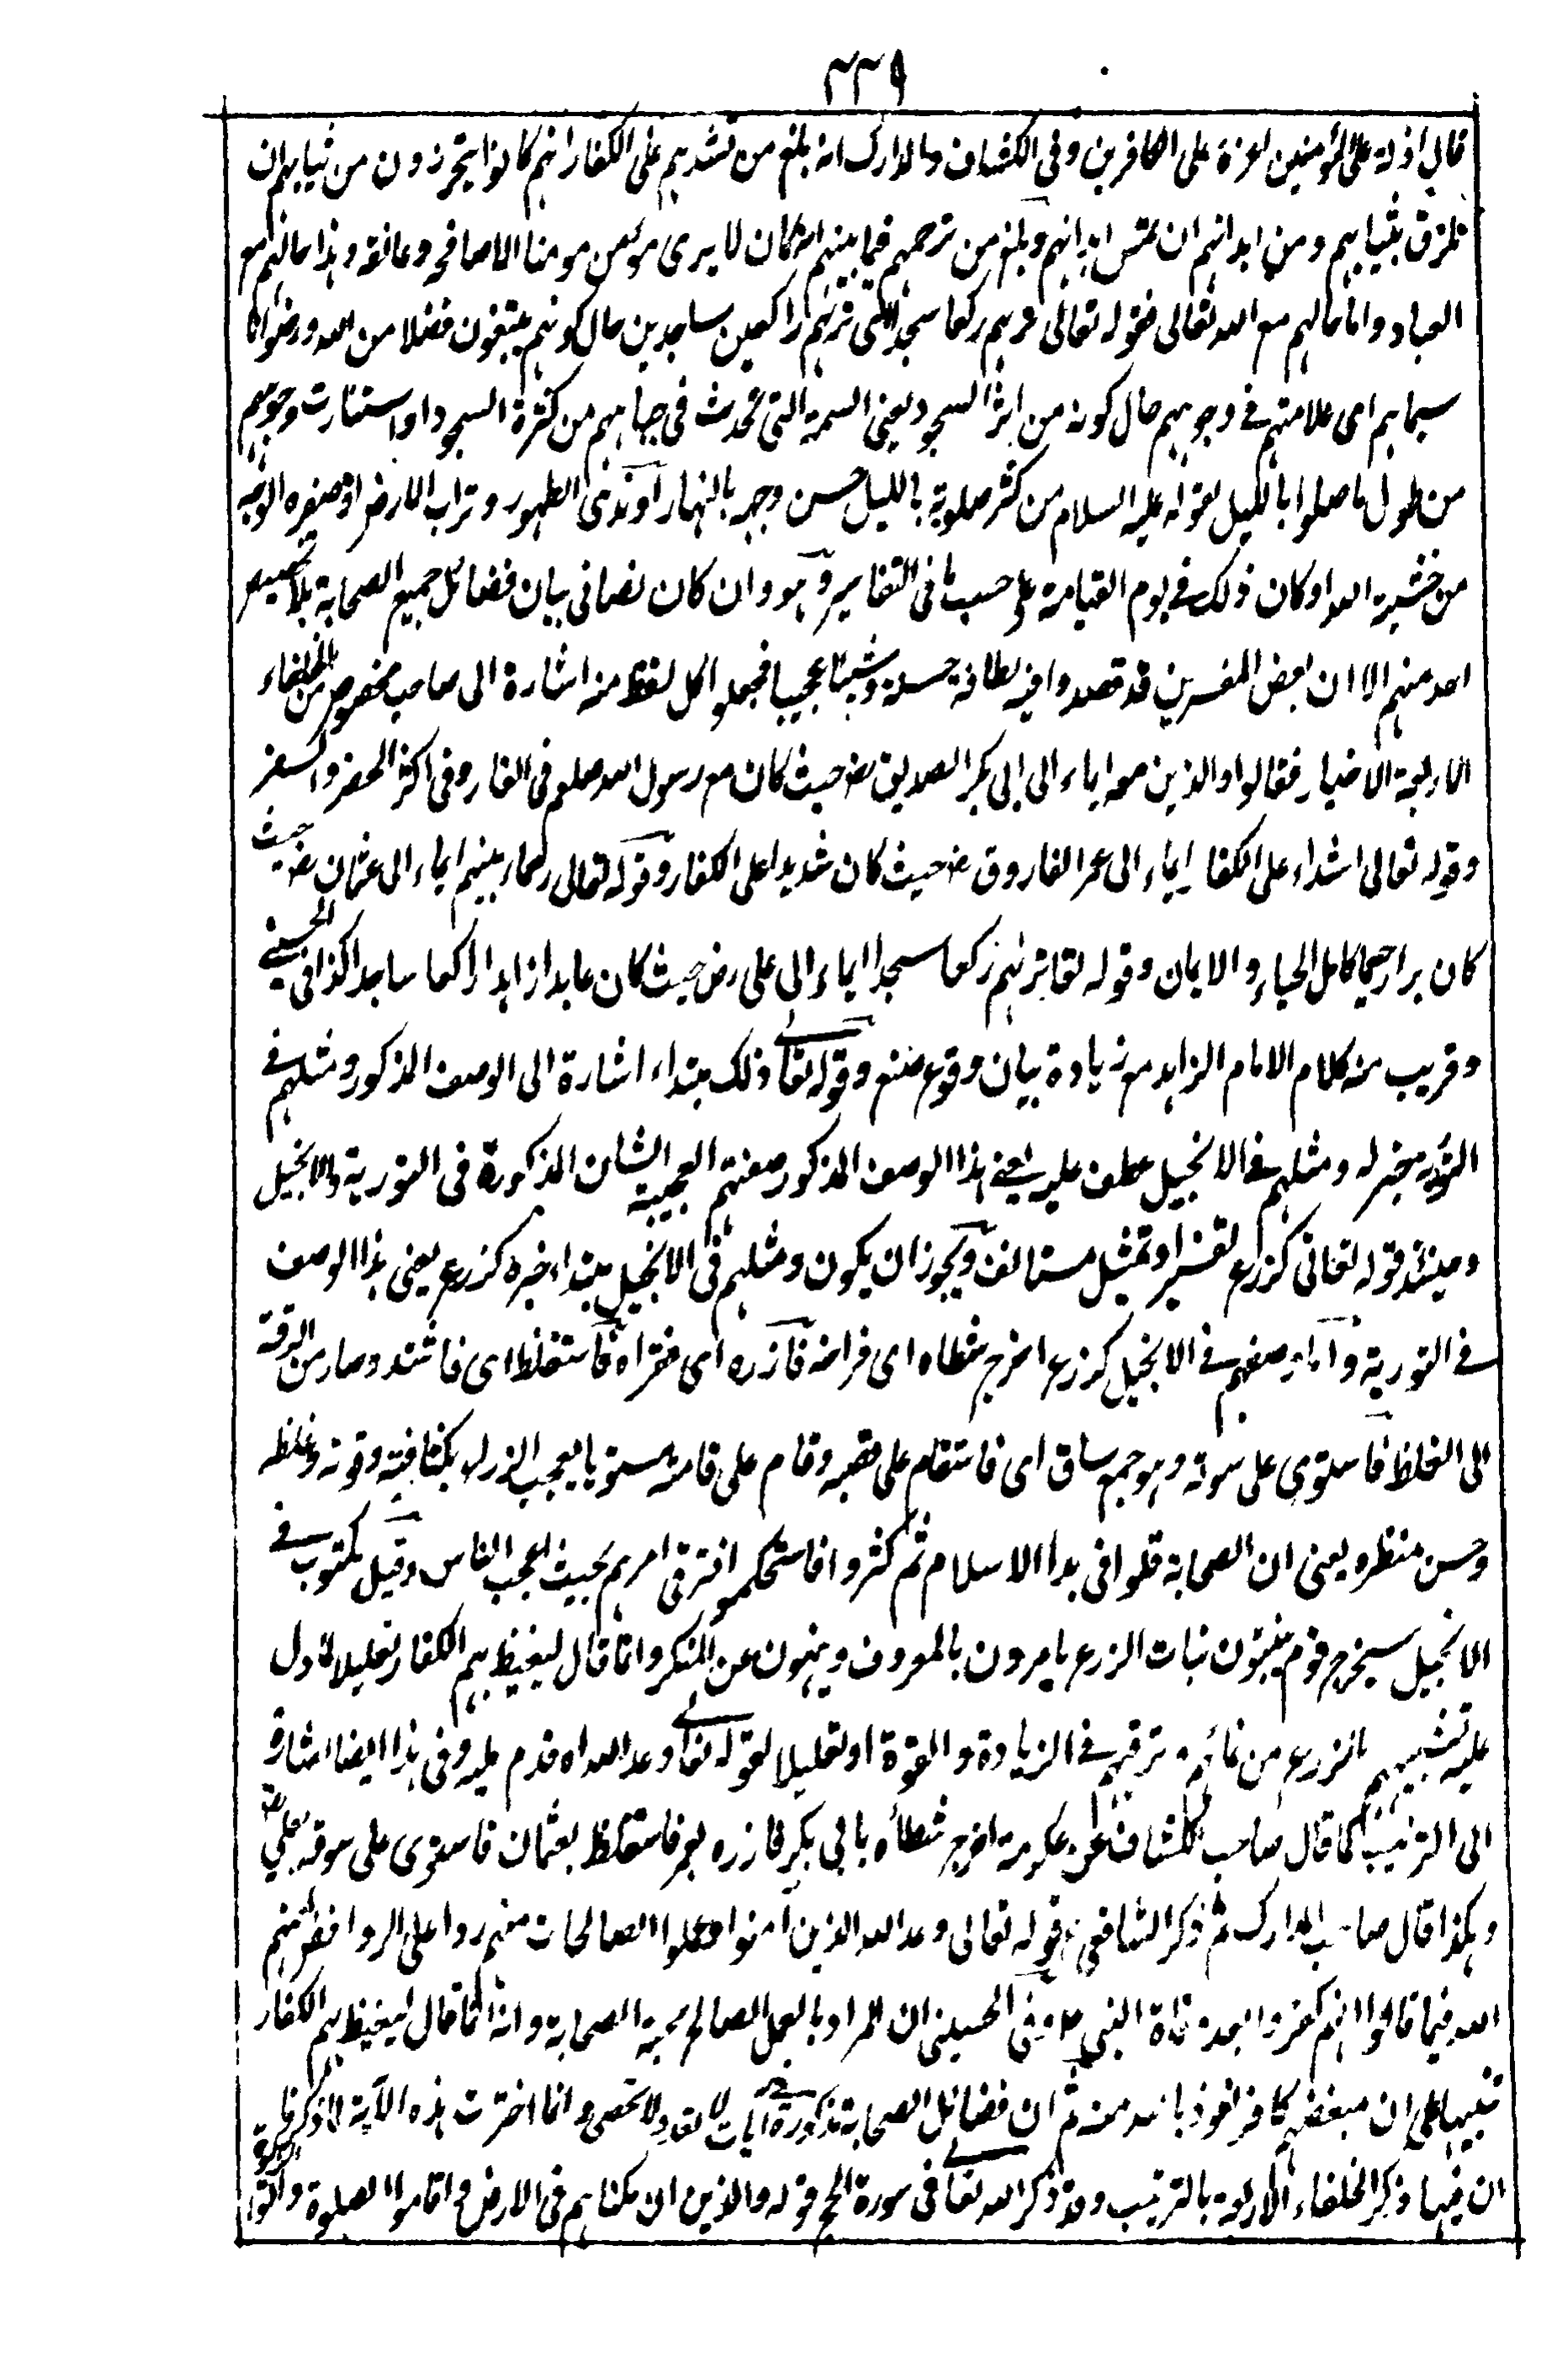 ٦٦٩
قال اذلة على المؤمنين اعزة على الكافرين وفي الكشاف والمدارك انه بلغ من تشددهم على الكفار انهم كانوا يتحرزون من ثيابهم ان
تلزق بثيابهم ومن ابدانهم ان تمس ابدانهم وبلغ من ترحمهم فيما بينهم انه كان لا يرى مؤمن مومنا الا صافحه وعانقه وهذا حالهم مع
العباد واما حالهم مع الله تعالى فقوله تعالى تريهم ركعا سجدا اى تريهم راكعين ساجدين حال كونهم يبتغون فضلا من الله ورضوانا
سيماهم اى علامتهم في وجوههم حال كونه من اثر السجود يعني السمة التي تحدث في جباههم من كثرة السجود او استنارت وجوههم
من طول ما صلوا بالليل لقوله عليه السلام من كثر صلوته بالليل حسن وجهه بالنهار او ندى الطهور وتراب الارض او صفره الوجه
من خشية الله او كان ذلك في يوم القيامة على حسب ما في التفاسير وهو وان كان نصا في بيان فضائل جميع الصحابة بلا تخصيص
احد منهم الا ان بعض المفسرين قد قصدوا فيه لطافة حسنة وشيئا عجيبا فجعلوا كل لفظ منه اشارة الى صاحب مخصوص من الخلفاء
الاربعة الاخيار فقالوا والذين معه ايماء الى ابي بكر الصديق رض حيث كان مع رسول الله صلعم في الغار وفي اكثر الحضر والسفر
وقوله تعالى اشداء على الكفار ايماء الى عمر الفاروق رض حيث كان شديدا على الكفار وقوله تعالى رحماء بينهم ايماء الى عثمان رض حيث
كان برا رحيما كامل الحياء والايمان وقوله تعا تريهم ركعا سجدا ايماء الى على رض حيث كان عابدا زاهدا راكعا ساجدا كذا في الحسيني
وقريب منه كلام الامام الزاهد مع زيادة بيان وقوع صنع وقوله تعا ذلك مبتداء اشارة الى الوصف المذكور ومثلهم في
التورية خبر له ومثلهم في الانجيل عطف عليه يعني هذا الوصف المذكور صفتهم العجيبة الشان المذكورة في التورية والانجيل
وحينئذ قوله تعالى كزرع تفسير او تمثيل مستانف ويجوز ان يكون ومثلهم في الانجيل مبتداء خبره كزرع يعني هذا الوصف
في التورية واما وصفهم في الانجيل كزرع اخرج شطاه اى فراخه فازره اى فقواه فاستغلظ اى فاشتد وصار من الرقة
الى الغلظ فاستوى على سوقه وهو جمع ساق اى فاستقام على قصبه وقام على قامته مستويا يعجب الزراع بكثافته وقوته وغلظه
وحسن منظره يعني ان الصحابة قلوا في بدا الاسلام ثم كثروا فاستحكموا فترقى امرهم بحيث اعجب الناس وقيل مكتوب في
الانجيل سيخرج قوم ينبتون نبات الزرع يامرون بالمعروف وينهون عن المنكر وانما قال ليغيظ بهم الكفار تعليلا لما دل
عليه تشبيههم بالزرع من نمائهم وترقيهم في الزيادة والقوة او تعليلا لقوله تعا وعد الله اه قدم عليه وفي هذا ايضا اشارة
الى الترتيب كما قال صاحب الكشاف عن عكرمة اخرج شطأه بابي بكر فازره بعمر فاستغلظ بعثمان فاستوى على سوقه بعلي رض
وهكذا قال صاحب المدارك ثم ذكر الشافعي قوله تعالى وعد الله الذين آمنوا وعملوا الصالحات منهم ردا على الروافض لعنهم
الله فيما قالوا انهم كفروا بعد وفاة النبي وفي الحسيني ان المراد بالعمل الصالح محبة الصحابة وانه انما قال ليغيظ بهم الكفار
تنبيها على ان مبغضهم كافر نعوذ بالله منه ثم ان فضائل الصحابة مذكورة في آيات لا تعد ولا تحصى وانما اخترت هذه الآية لما ذكرنا
ان فيها ذكر الخلفاء الاربعة بالترتيب وقد ذكر الله تعا في سورة الحج قوله والذين ان مكناهم في الارض اقاموا الصلوة واتوا الزكوة